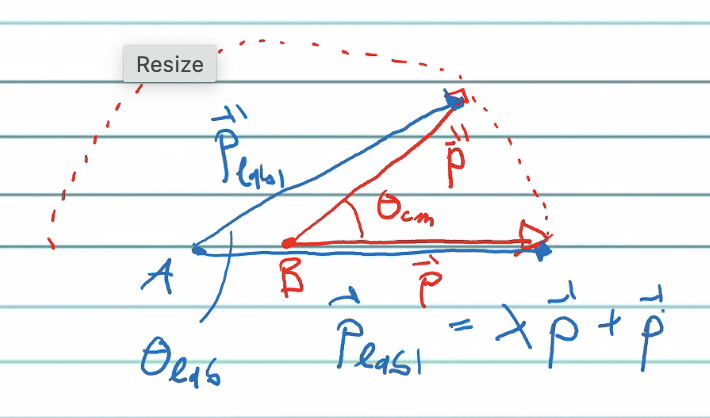 Resize
P⃗''lab1
p⃗''
θcm
A
B
p⃗
θlab
P⃗lab1 = λp⃗ + p⃗